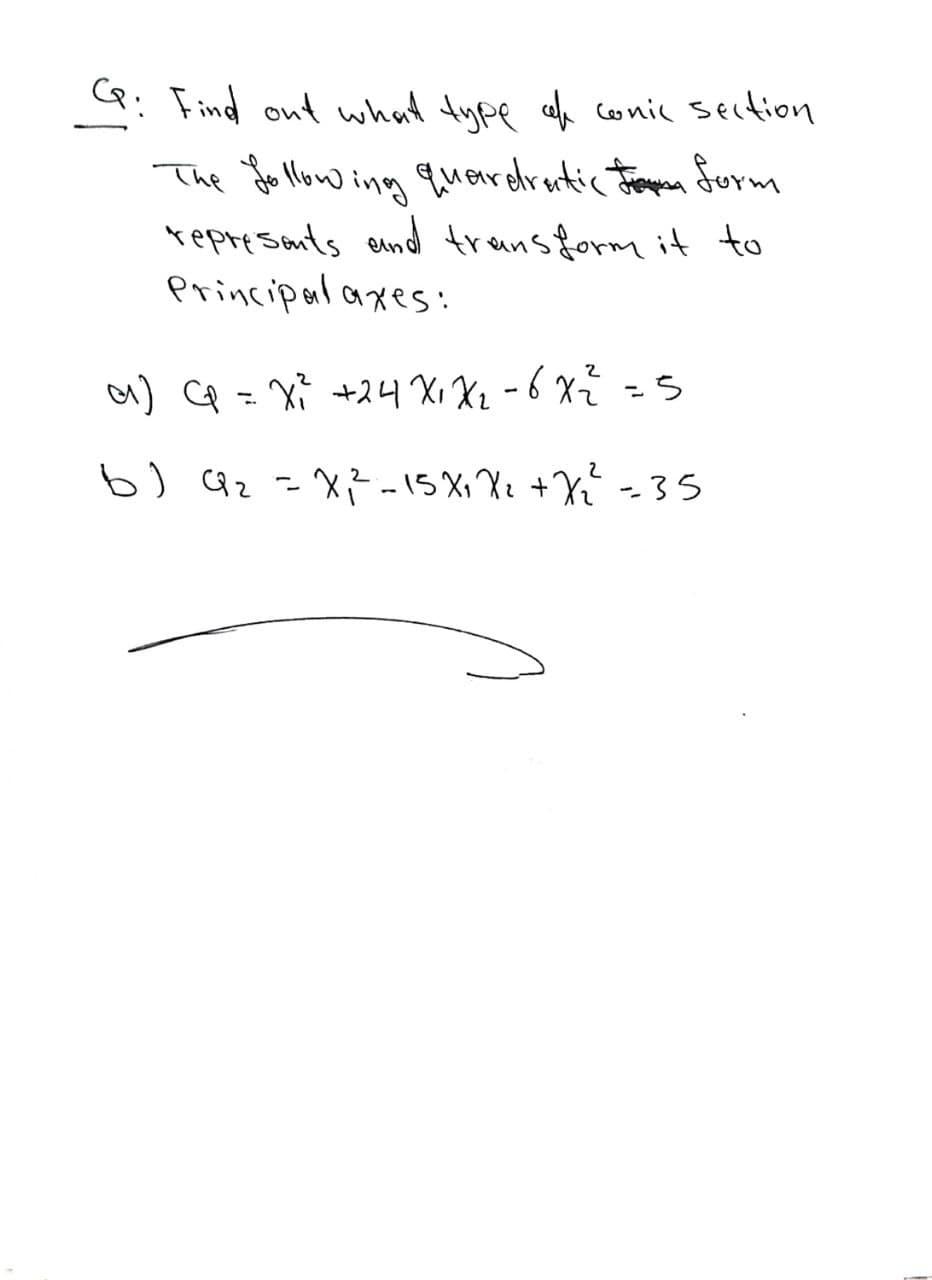 Q: Find out what type of conic section
The following quardratic form
represents and transform it to
Principal axes:
a) Q = x₁² +24 x₁x₂ -6 x₂² = 5
b) Q2 = x₁² -15 x₁x₂ + x₂² = 35